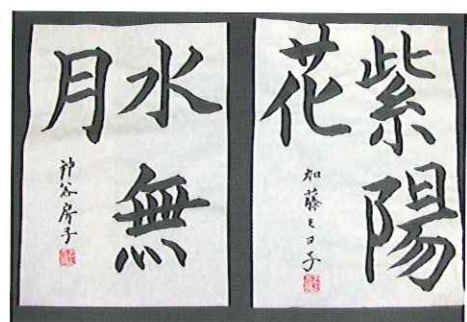 紫陽
花
加藤とヨ子
水無
月
神谷房子